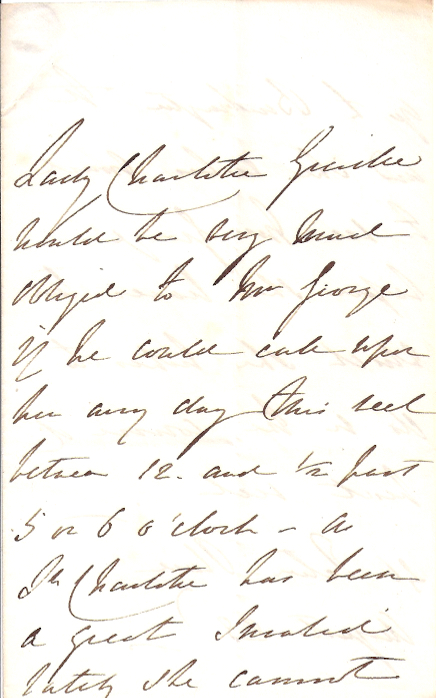 Lady Charlotte
would be very much
obliged to Mr George
if he could call upon
her any day this week
between 12. and 1/2 past
5 or 6 o'clock - As
Ly Charlotte has been
a great Invalid
lately she cannot